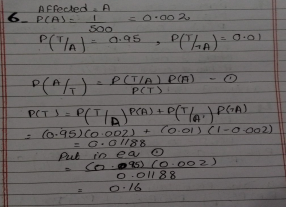 Affected = A
6- P(A) = 1/500 = 0.002
P(T/A) = 0.95 , P(T/¬A) = 0.01
P(A/T) = P(T/A) P(A) / P(T) - ①
P(T) = P(T/A) P(A) + P(T/A') P(¬A)
= (0.95)(0.002) + (0.01)(1-0.002)
= 0.01188
Put in eq ①
= (0.95)(0.002) / 0.01188
= 0.16